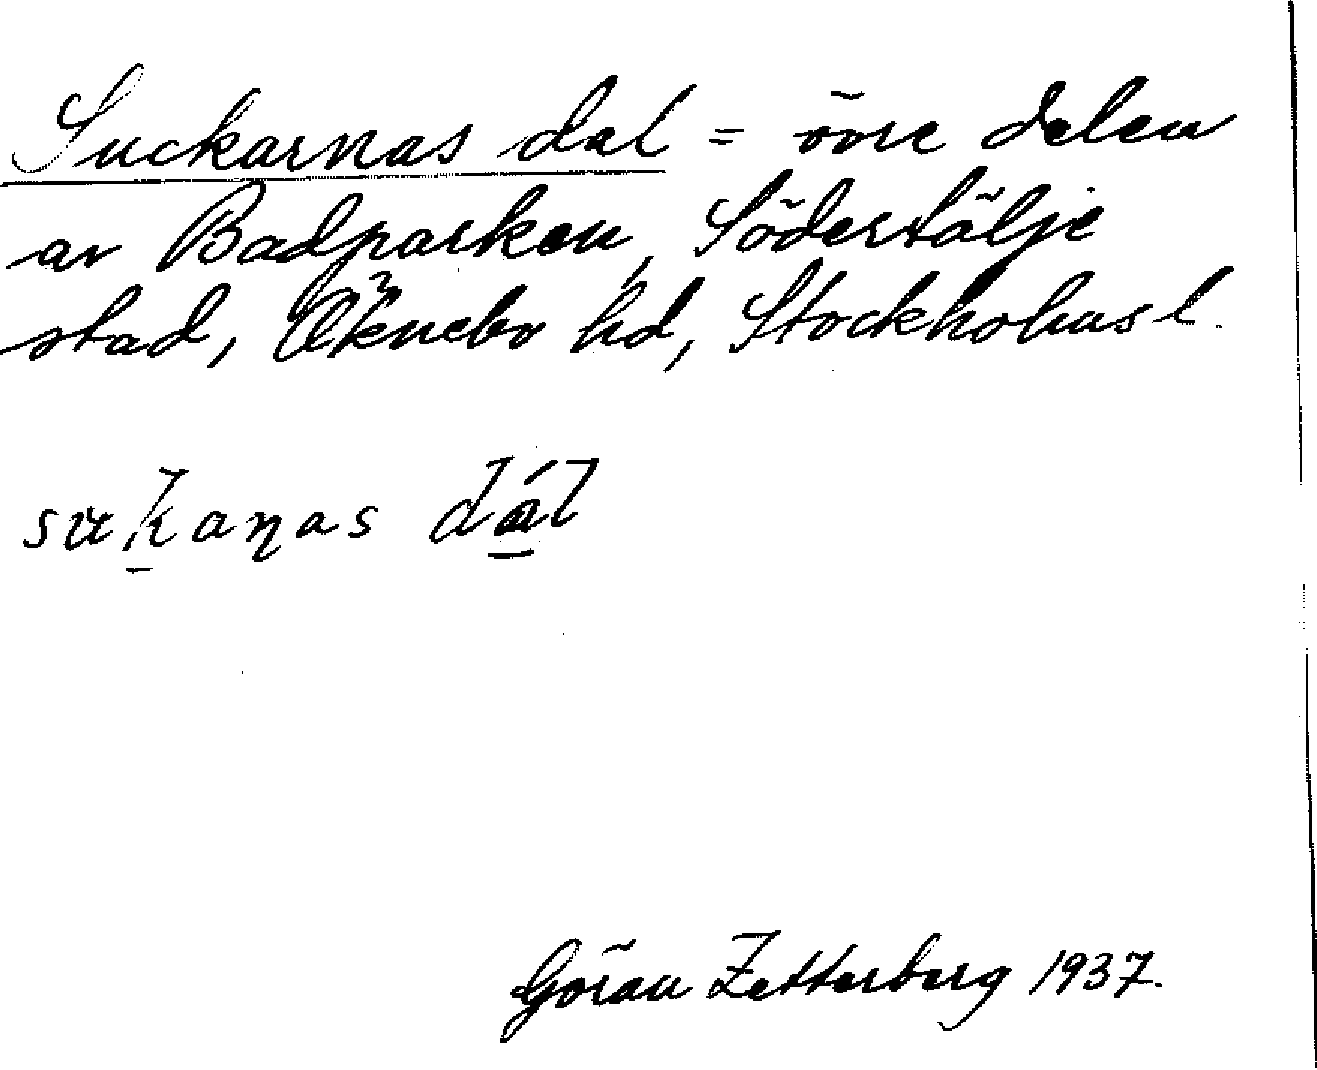 Suckarnas dal = övre delen
av Badparken, Södertälje
stad, Öknebo hd, Stockholms l.
Göran Zetterberg 1937.